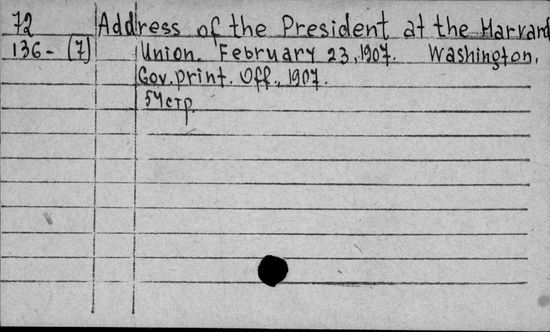 72 Address of the President at the Harvard
136-(7) Union. February 23, 1907. Washington,
Gov. print. Off., 1907.
54 стр.